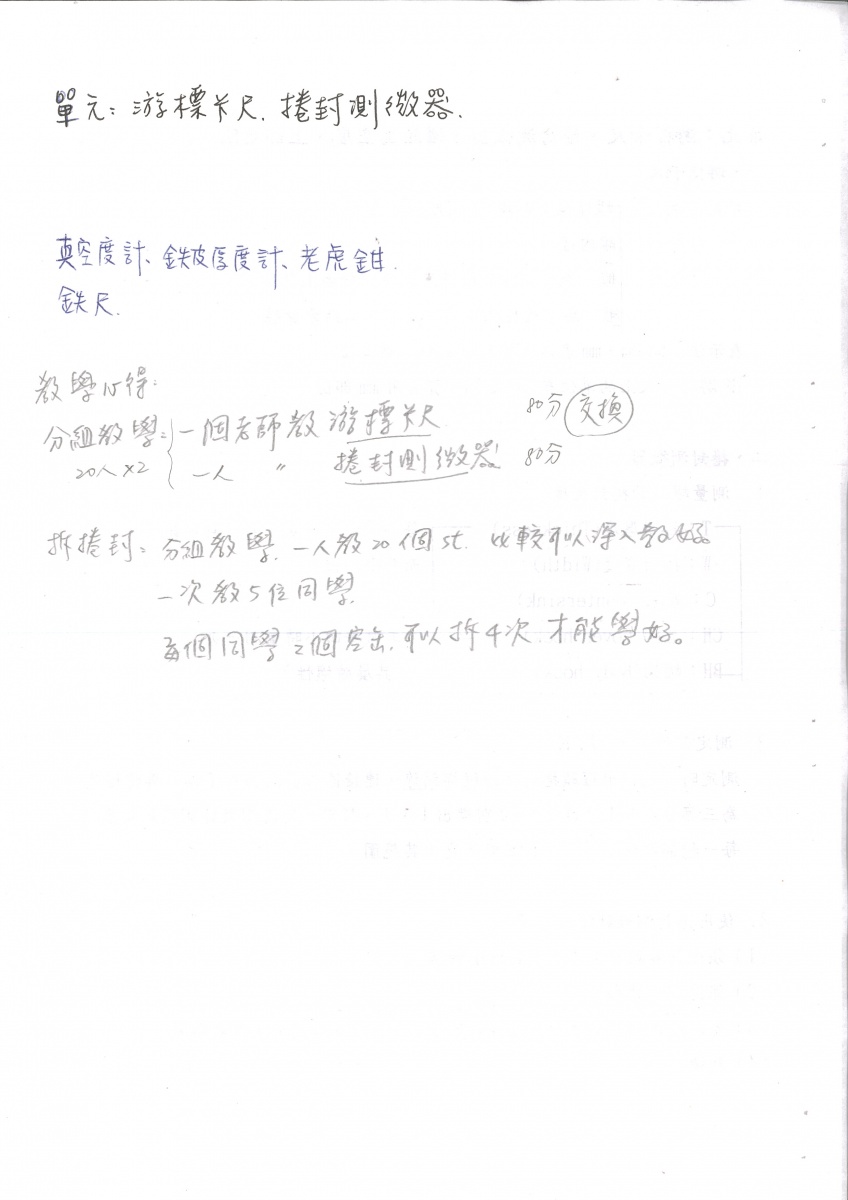 單元：游標卡尺. 捲封測微器.
真空度計、鉄皮厚度計、老虎鉗.
鉄尺.
教學心得：
分組教學：一個老師教 游標卡尺 80分 交換
20人×2 一人 〃 捲封測微器 80分
拆捲封：分組教學. 一人教20個st. 比較可以深入教好。
一次教5位同學.
每個同學2個空缶. 可以拆4次才能學好。